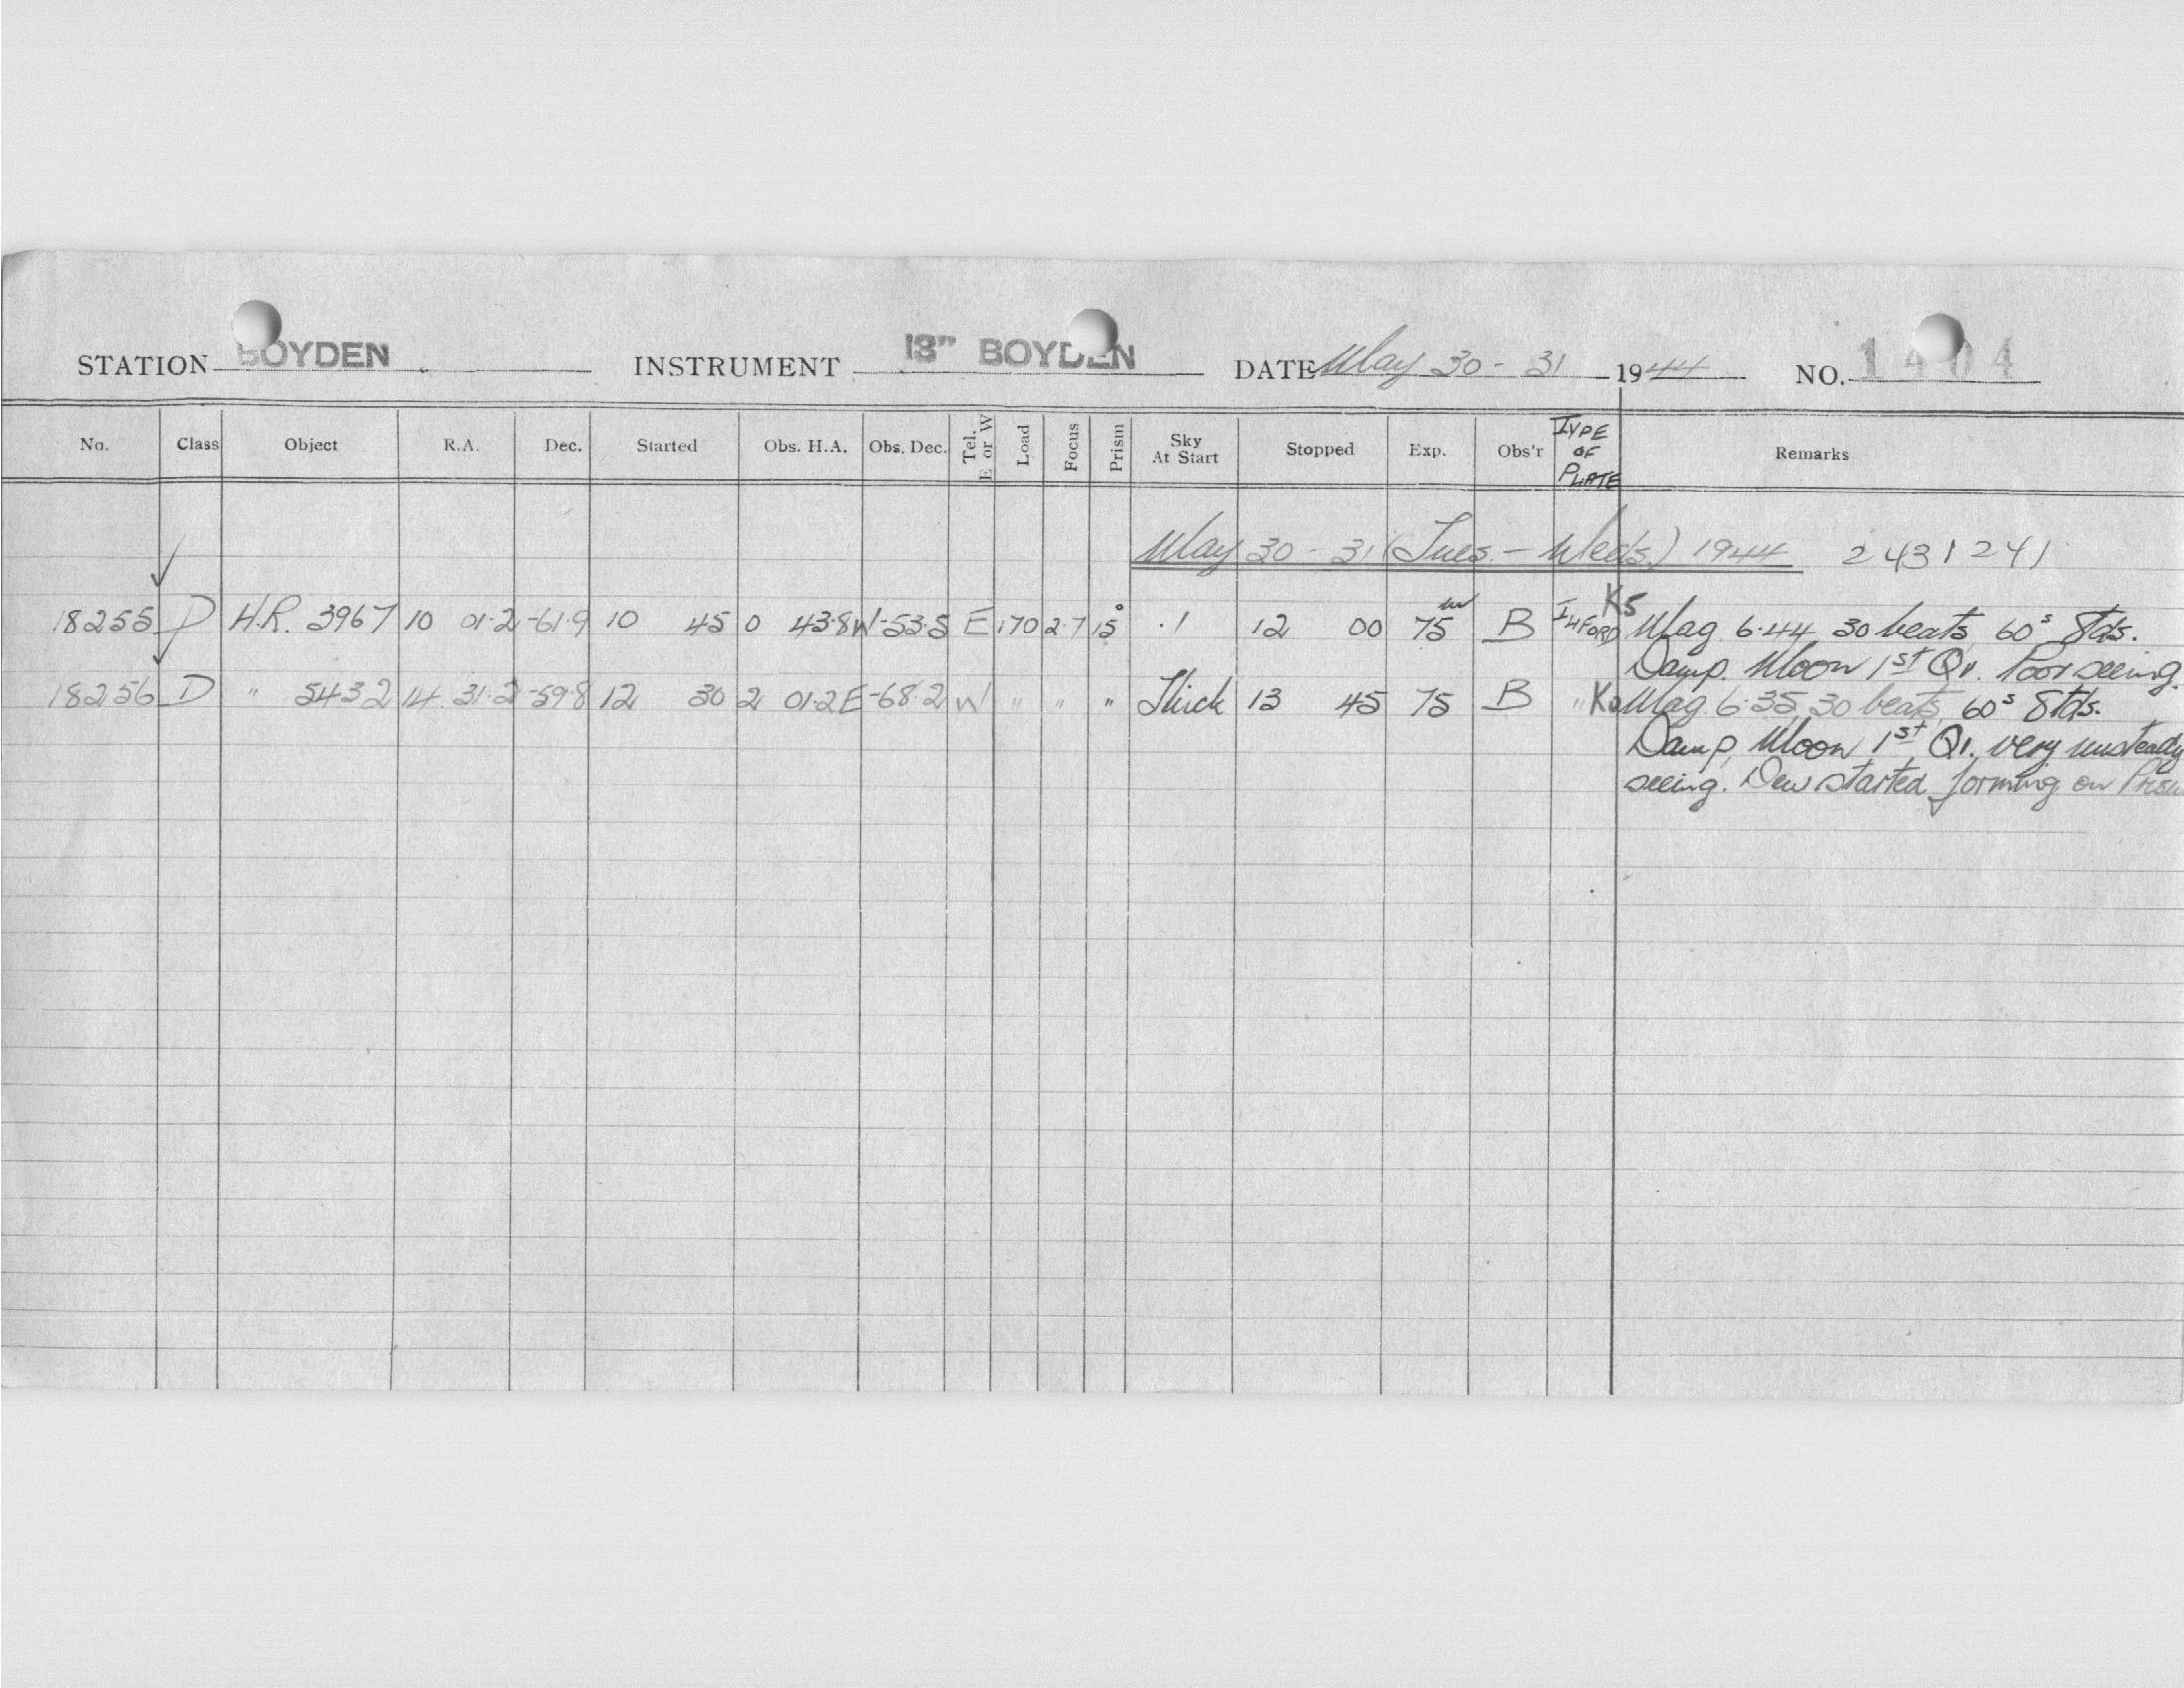 STATION BOYDEN INSTRUMENT 13" BOYDEN DATE May 30 - 31 1944 NO. 1404
No. Class Object R.A. Dec. Started Obs. H.A. Obs. Dec. Tel. E or W Load Focus Prism Sky At Start Stopped Exp. Obs'r TYPE OF PLATE Remarks
May 30 - 31 (Tues. - Weds.) 1944 2431241
18255 D H.R. 3967 10 01.2 -61.9 10 45 0 43.8W -53.5 E 170 2.7 15° .1 12 00 75m B ILFORD K5 Mag 6.44 30 beats 60s Stds.
Damp. Moon 1st Qr. Poor seeing.
18256 D " 5432 14 31.2 -59.8 12 30 2 01.2E -68.2 W " " " Thick 13 45 75 B " Mag. 6.35 30 beats, 60s Stds.
Damp, Moon 1st Qr. very unsteady
seeing. Dew started forming on